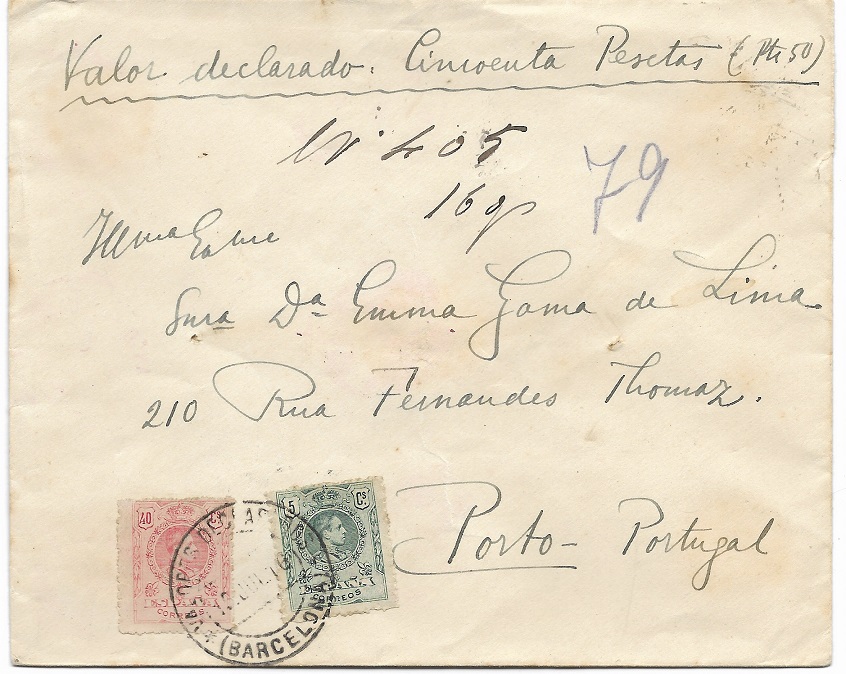 Valor declarado: Cincuenta Pesetas (Pts 50)
Nº 405
79
16 gr
Illma Exma
Snra Dª Emma Gama de Lima
210 Rua Fernandes Thomaz.
Porto - Portugal
40 Cs
CORREOS
5 Cs.
CORREOS
VALORES DECLAR
(BARCELONA)